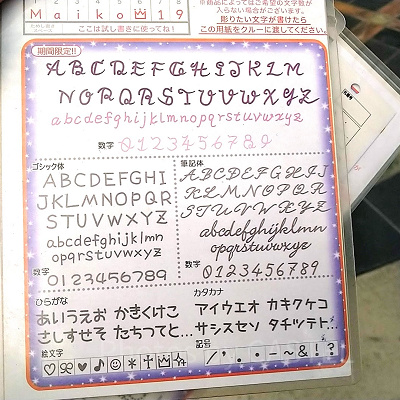 Maiko♔19
ここは試し書きに使ってね!
※商品によってはご希望の文字数が
入らない場合がございます。
彫りたい文字が書けたら
この用紙をクルーに渡してください。
期間限定!!
ABCDEFGHIJKLM
NOPQRSTUVWXYZ
abcdefghijklmnopqrstuvwxyz
数字 0123456789
ゴシック体
ABCDEFGHI
JKLMNOPQR
STUVWXYZ
abcdefghijklmn
opqrstuvwxyz
数字
0123456789
筆記体
ABCDEFGHIJ
KLMNOPQR
STUVWXYZ
abcdefghijklmn
opqrstuvwxyz
数字 0123456789
ひらがな
あいうえお かきくけこ
さしすせそ たちつてと...
カタカナ
アイウエオ カキクケコ
サシスセソ タチツテト...
絵文字
♡ ♥ ♪ ☺ * ✝ ♔
記号
/ ' . • − ~ & ! ?